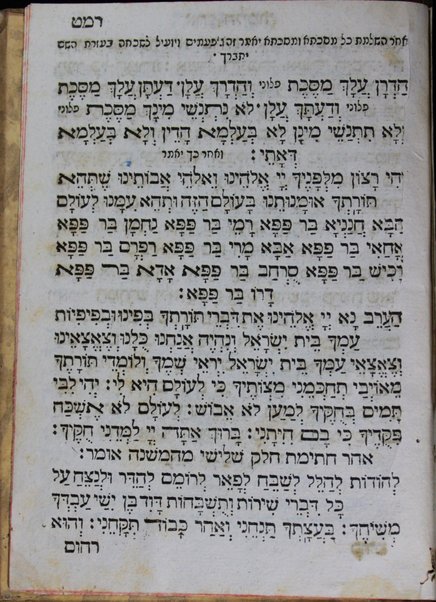 רמט
אחר השלמת כל מסכתא ומסכתא יאמר זה ג׳ פעמים ויועיל לשכחה בעזרת השם
יתברך ׃
הַדְרָן עֲלָךְ מַסֶּכֶת פלוני וְהַדְרָךְ עֲלָן דַּעְתָּן עֲלָךְ מַסֶּכֶת
פלוני וְדַעְתָּךְ עֲלָן לֹא נִתְנְשֵׁי מִינָךְ מַסֶּכֶת פלוני
וְלָא תִתְנְשֵׁי מִינָן לָא בְּעָלְמָא הָדֵין וְלָא בְּעָלְמָא
דְאָתֵי׃ ואחר כך יאמר
יְהִי רָצוֹן מִלְּפָנֶיךָ יְיָ אֱלֹהֵינוּ וֵאלֹהֵי אֲבוֹתֵינוּ שֶׁתְּהֵא
תּוֹרָתְךָ אוּמָנוּתֵנוּ בָּעוֹלָם הַזֶּה וּתְהֵא עִמָּנוּ לְעוֹלָם
הַבָּא חֲנִנְיָא בַּר פָּפָּא רָמֵי בַּר פָּפָּא נַחְמָן בַּר פָּפָּא
אֲחָאִי בַּר פָּפָּא אַבָּא מָרִי בַּר פָּפָּא רַפְרָם בַּר פָּפָּא
וְכִישׁ בַּר פָּפָּא סֻרְחָב בַּר פָּפָּא אַדָּא בַּר פָּפָּא
דָרוֹ בַּר פָּפָּא׃
הַעֲרֵב נָא יְיָ אֱלֹהֵינוּ אֶת דִּבְרֵי תוֹרָתְךָ בְּפִינוּ וּבְפִיפִיּוֹת
עַמְּךָ בֵּית יִשְׂרָאֵל וְנִהְיֶה אֲנַחְנוּ כֻּלָּנוּ וְצֶאֱצָאֵינוּ
וְצֶאֱצָאֵי עַמְּךָ בֵּית יִשְׂרָאֵל יִרְאֵי שְׁמֶךָ וְלוֹמְדֵי תוֹרָתֶךָ
מֵאוֹיְבַי תְּחַכְּמֵנִי מִצְוֹתֶיךָ כִּי לְעוֹלָם הִיא לִי׃ יְהִי לִבִּי
תָמִים בְּחֻקֶּיךָ לְמַעַן לֹא אֵבוֹשׁ׃ לְעוֹלָם לֹא אֶשְׁכַּח
פִּקּוּדֶיךָ כִּי בָם חִיִּיתָנִי׃ בָּרוּךְ אַתָּה יְיָ לַמְּדֵנִי חֻקֶּיךָ׃
אחר חתימת חלק שלישי מהמשנה אומר׃
לְהוֹדוֹת לְהַלֵּל לְשַׁבֵּחַ לְפָאֵר לְרוֹמֵם לְהַדֵּר וּלְנַצֵּחַ עַל
כָּל דִּבְרֵי שִׁירוֹת וְתֻשְׁבְּחוֹת דָּוִד בֶּן יִשַׁי עַבְדְּךָ
מְשִׁיחֶךָ׃ בַּעֲצָתְךָ תַנְחֵנִי וְאַחַר כָּבוֹד תִּקָּחֵנִי׃ וְהוּא
רחום